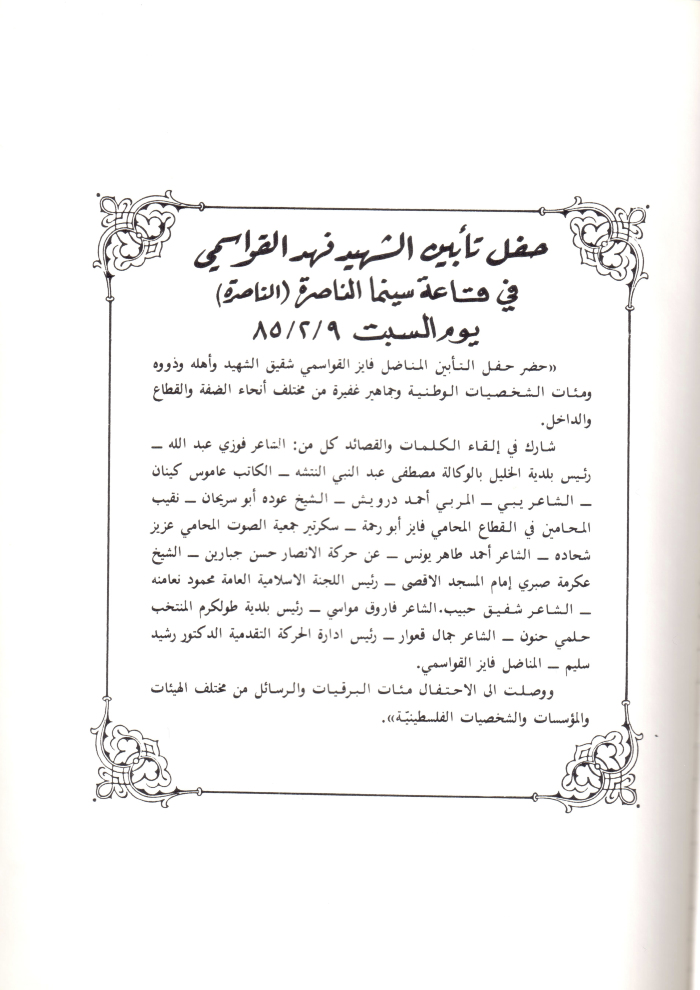 حفل تأبين الشهيد فهد القواسمي
في قاعة سينما الناصرة (الناصرة)
يوم السبت ٨٥/٢/٩
«حضر حفل التأبين المناضل فايز القواسمي شقيق الشهيد وأهله وذووه
ومئات الشخصيات الوطنية وجماهير غفيرة من مختلف أنحاء الضفة والقطاع
والداخل.
شارك في إلقاء الكلمات والقصائد كل من: الشاعر فوزي عبد الله ــ
رئيس بلدية الخليل بالوكالة مصطفى عبد النبي النتشه ــ الكاتب عاموس كينان
ــ الشاعر يبي ــ المربي أحمد درويش ــ الشيخ عوده أبو سريحان ــ نقيب
المحامين في القطاع المحامي فايز أبو رحمة ــ سكرتير جمعية الصوت المحامي عزيز
شحاده ــ الشاعر أحمد طاهر يونس ــ عن حركة الانصار حسن جبارين ــ الشيخ
عكرمة صبري إمام المسجد الاقصى ــ رئيس اللجنة الاسلامية العامة محمود نعامنه
ــ الشاعر شفيق حبيب.الشاعر فاروق مواسي ــ رئيس بلدية طولكرم المنتخب
حلمي حنون ــ الشاعر جمال قعوار ــ رئيس ادارة الحركة التقدمية الدكتور رشيد
سليم ــ المناضل فايز القواسمي.
ووصلت الى الاحتفال مئات البرقيات والرسائل من مختلف الهيئات
والمؤسسات والشخصيات الفلسطينيّة».